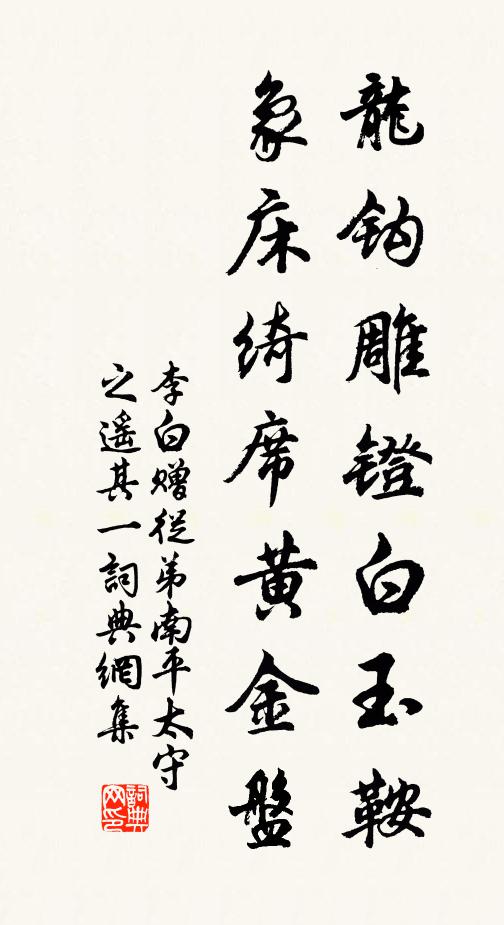 龍鈎雕鐙白玉鞍
象床綺席黃金盤
李白贈從弟南平太守
之遙其一詞典網集
詞典
网印